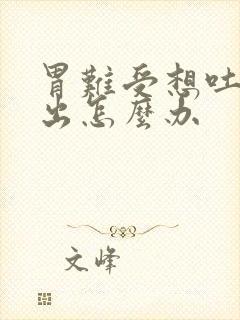 胃難受想吐
出怎麼办
文峰